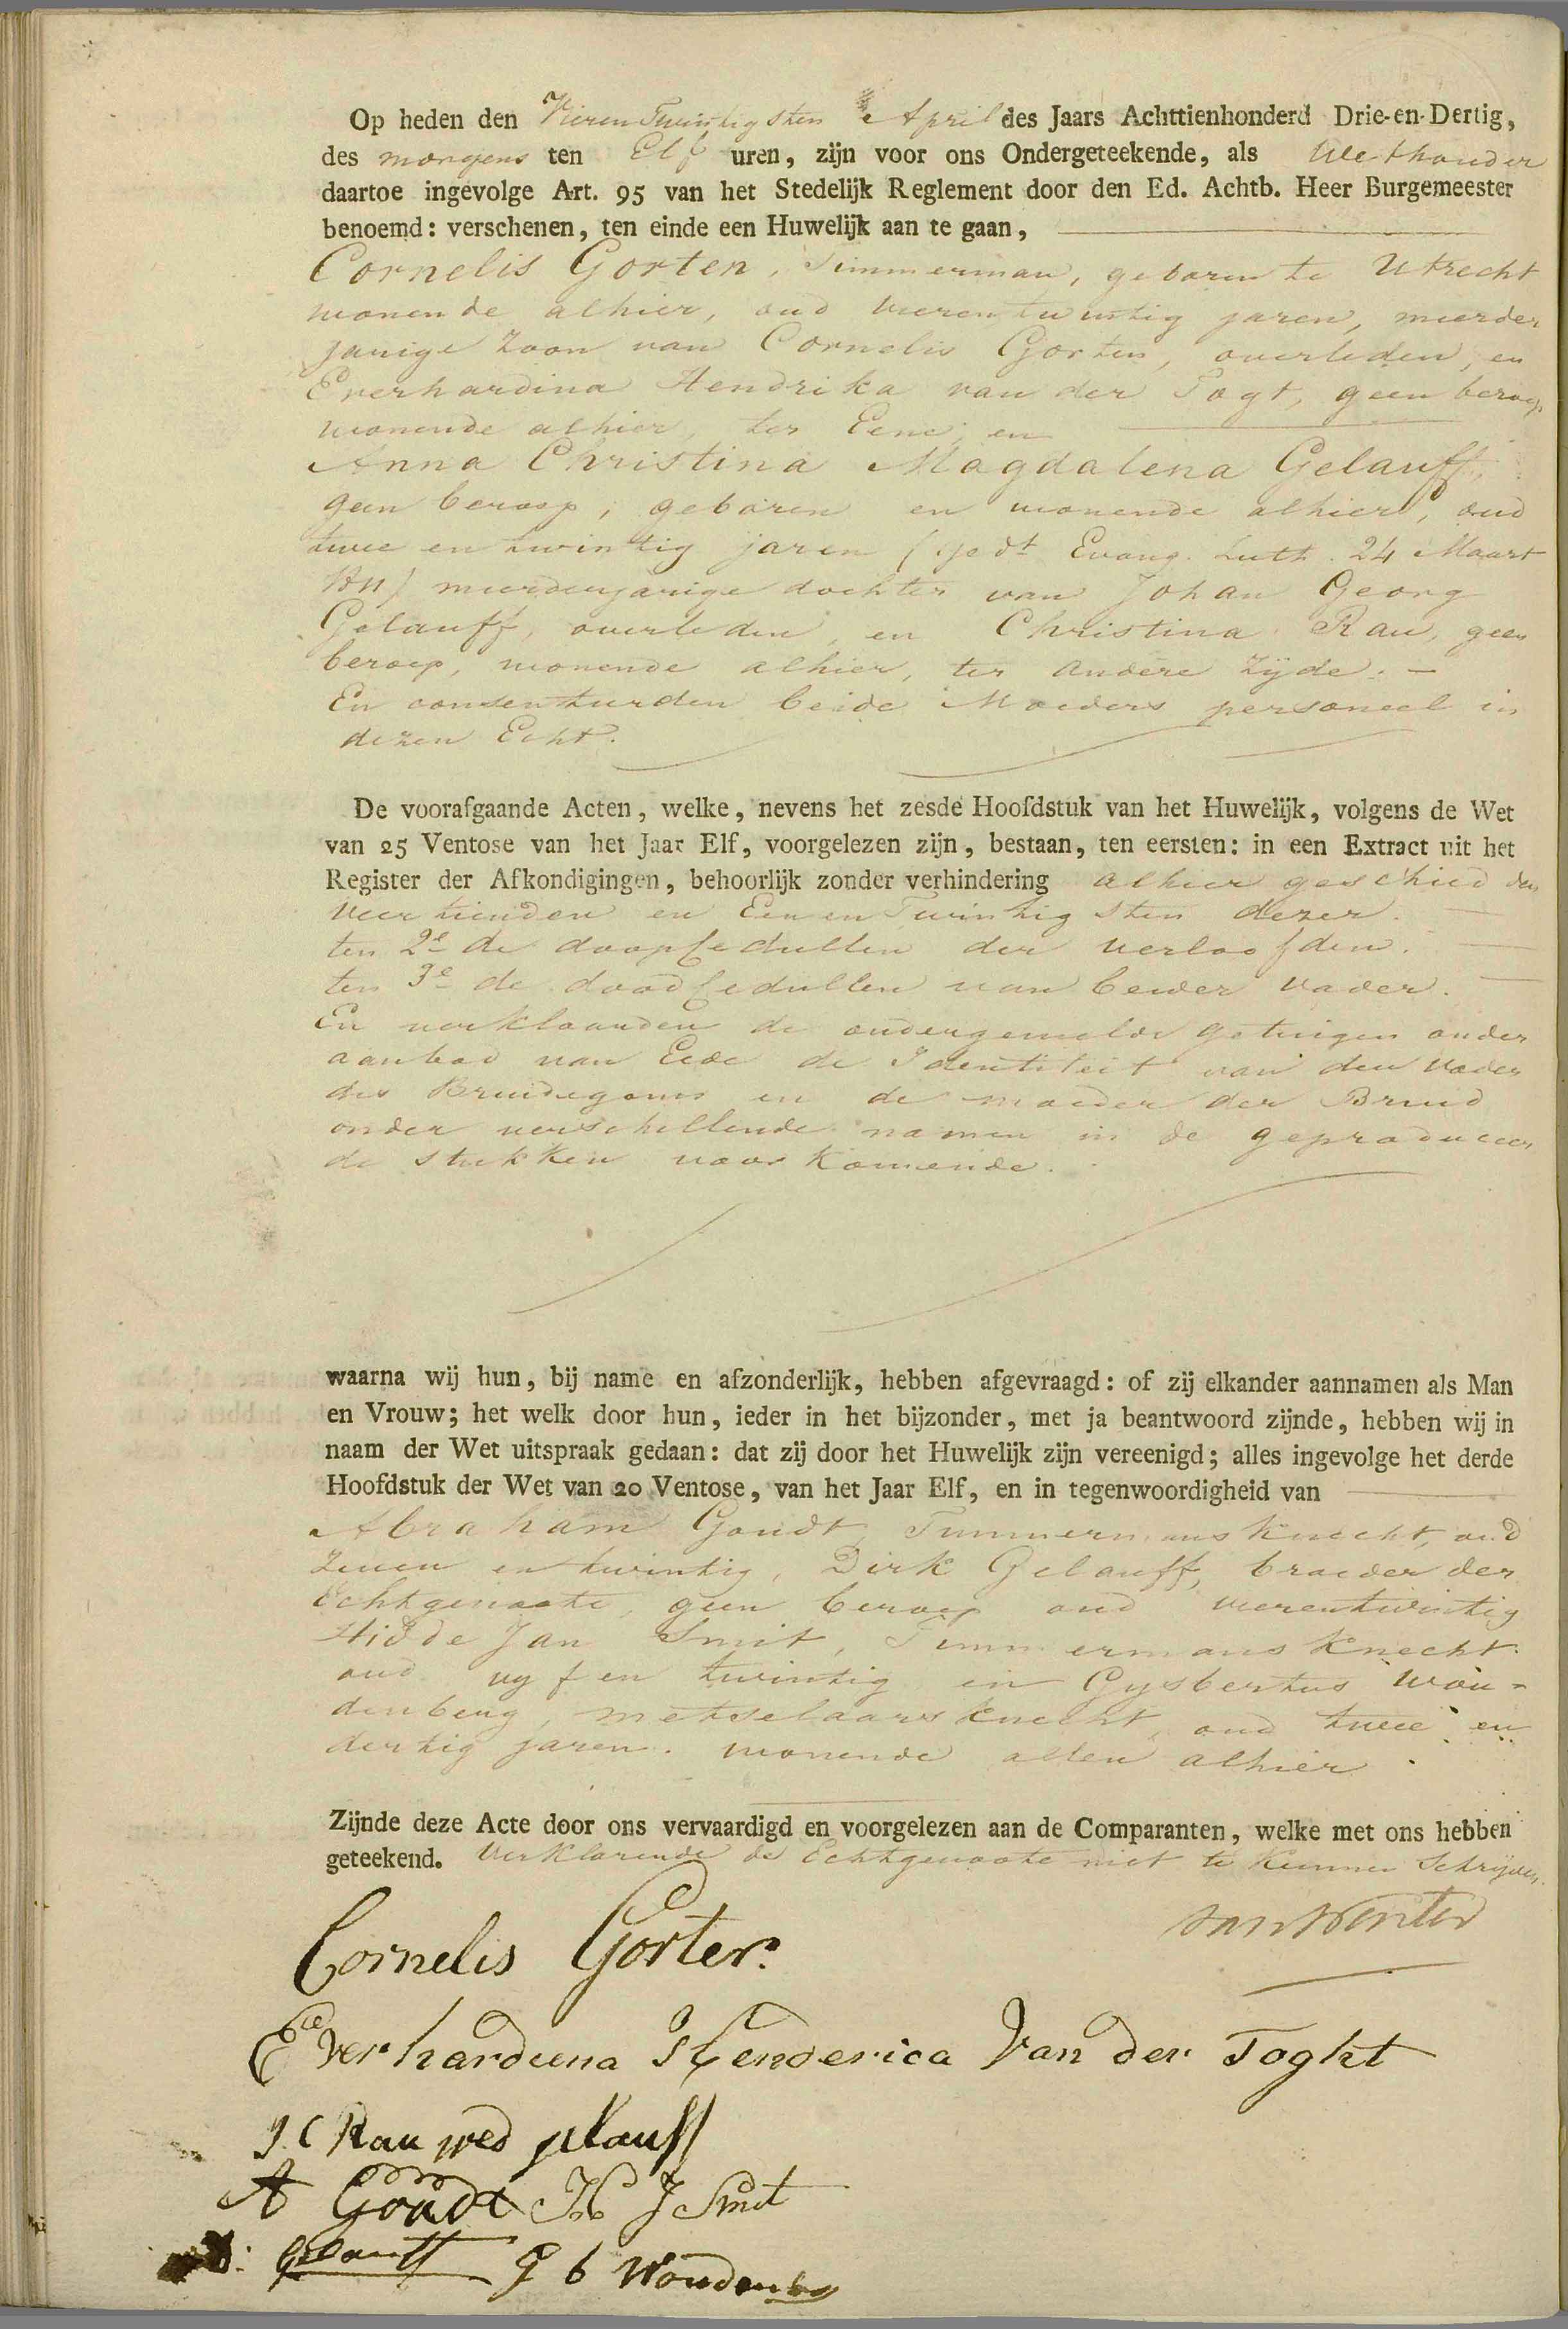 Op heden den Vierentwintigsten April des Jaars Achttienhonderd Drie-en-Dertig,
des morgens ten Elf uren, zijn voor ons Ondergeteekende, als Wethouder
daartoe ingevolge Art. 95 van het Stedelijk Reglement door den Ed. Achtb. Heer Burgemeester
benoemd: verschenen, ten einde een Huwelijk aan te gaan,
Cornelis Gorter, Timmerman, geboren te Utrecht
wonende alhier, oud vierentwintig jaren, meerder
jarige Zoon van Cornelis Gorter, overleden, en
Everhardina Hendrika van der Togt, geen beroep
wonende alhier, ter Eene en
Anna Christina Magdalena Gelauff,
geen beroep, geboren en wonende alhier, oud
twee en twintig jaren (gedt. Evang. Luth. 24 Maart
1811) meerderjarige dochter van Johan Georg
Gelauff, overleden, en Christina Rau, geen
beroep, wonende alhier, ter andere Zijde. —
En consenteerden beide Moeders personeel in
dezen Echt.
De voorafgaande Acten, welke, nevens het zesde Hoofdstuk van het Huwelijk, volgens de Wet
van 25 Ventose van het Jaar Elf, voorgelezen zijn, bestaan, ten eersten: in een Extract uit het
Register der Afkondigingen, behoorlijk zonder verhindering alhier geschied den
veertienden en Eenentwintigsten dezer.
ten 2e de doopcedullen der verloofden.
ten 3e de doodcedullen van beider vader.
En verklaarden de ondergemelde getuigen onder
aanbod van Eede de Identiteit van den vader
des Bruidegoms en de moeder der Bruid
onder verschillende namen in de geproduceer
de stukken voorkomende.
waarna wij hun, bij name en afzonderlijk, hebben afgevraagd: of zij elkander aannamen als Man
en Vrouw; het welk door hun, ieder in het bijzonder, met ja beantwoord zijnde, hebben wij in
naam der Wet uitspraak gedaan: dat zij door het Huwelijk zijn vereenigd; alles ingevolge het derde
Hoofdstuk der Wet van 20 Ventose, van het Jaar Elf, en in tegenwoordigheid van
Abraham Goudt, Timmermansknecht, oud
zeven en twintig, Dirk Gelauff, broeder der
Echtgenoote, geen beroep oud vierentwintig
Hidde Jan Smit, Timmermansknecht
oud vyf en twintig en Gysbertus Wou-
denberg, metselaarsknecht, oud twee en
dertig jaren. wonende allen alhier.
Zijnde deze Acte door ons vervaardigd en voorgelezen aan de Comparanten, welke met ons hebben
geteekend. Verklarende de Echtgenoote niet te kunnen Schrijven.
Cornelis Gorter.
Everhardiena Henderica Van der Toght
J C Rau wed gelauff
A Goudt H J Smit
D. Gelauff G b Woudenberg